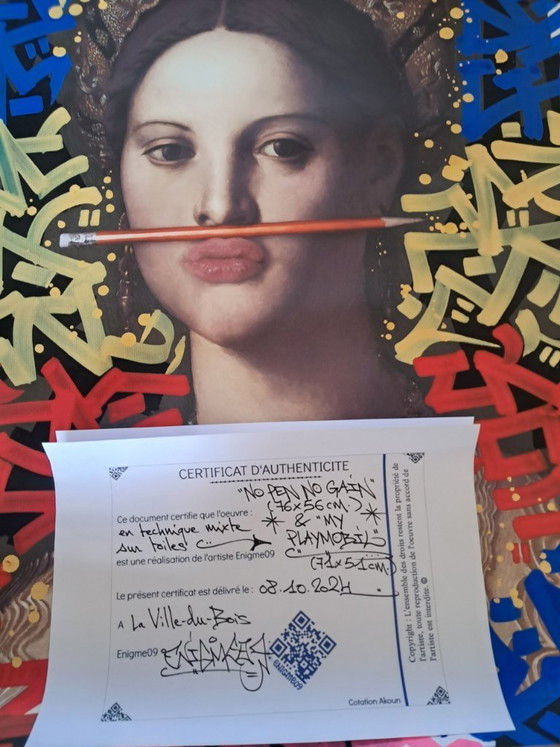 CERTIFICAT D'AUTHENTICITÉ
"NO PEN NO GAIN"
(76x56cm.)
& "MY
PLAYMOBIL"
(71x51cm.)
Ce document certifie que l'oeuvre :
en technique mixte
sur toiles
est une réalisation de l'artiste Enigme09
Le présent certificat est délivré le : 08.10.2024
A La Ville-du-Bois
Enigme09
ENIGME09
Cotation Akoun
Copyright : L'ensemble des droits restent la propriété de
l'artiste, toute reproduction de l'oeuvre sans accord de
l'artiste est interdite. ©